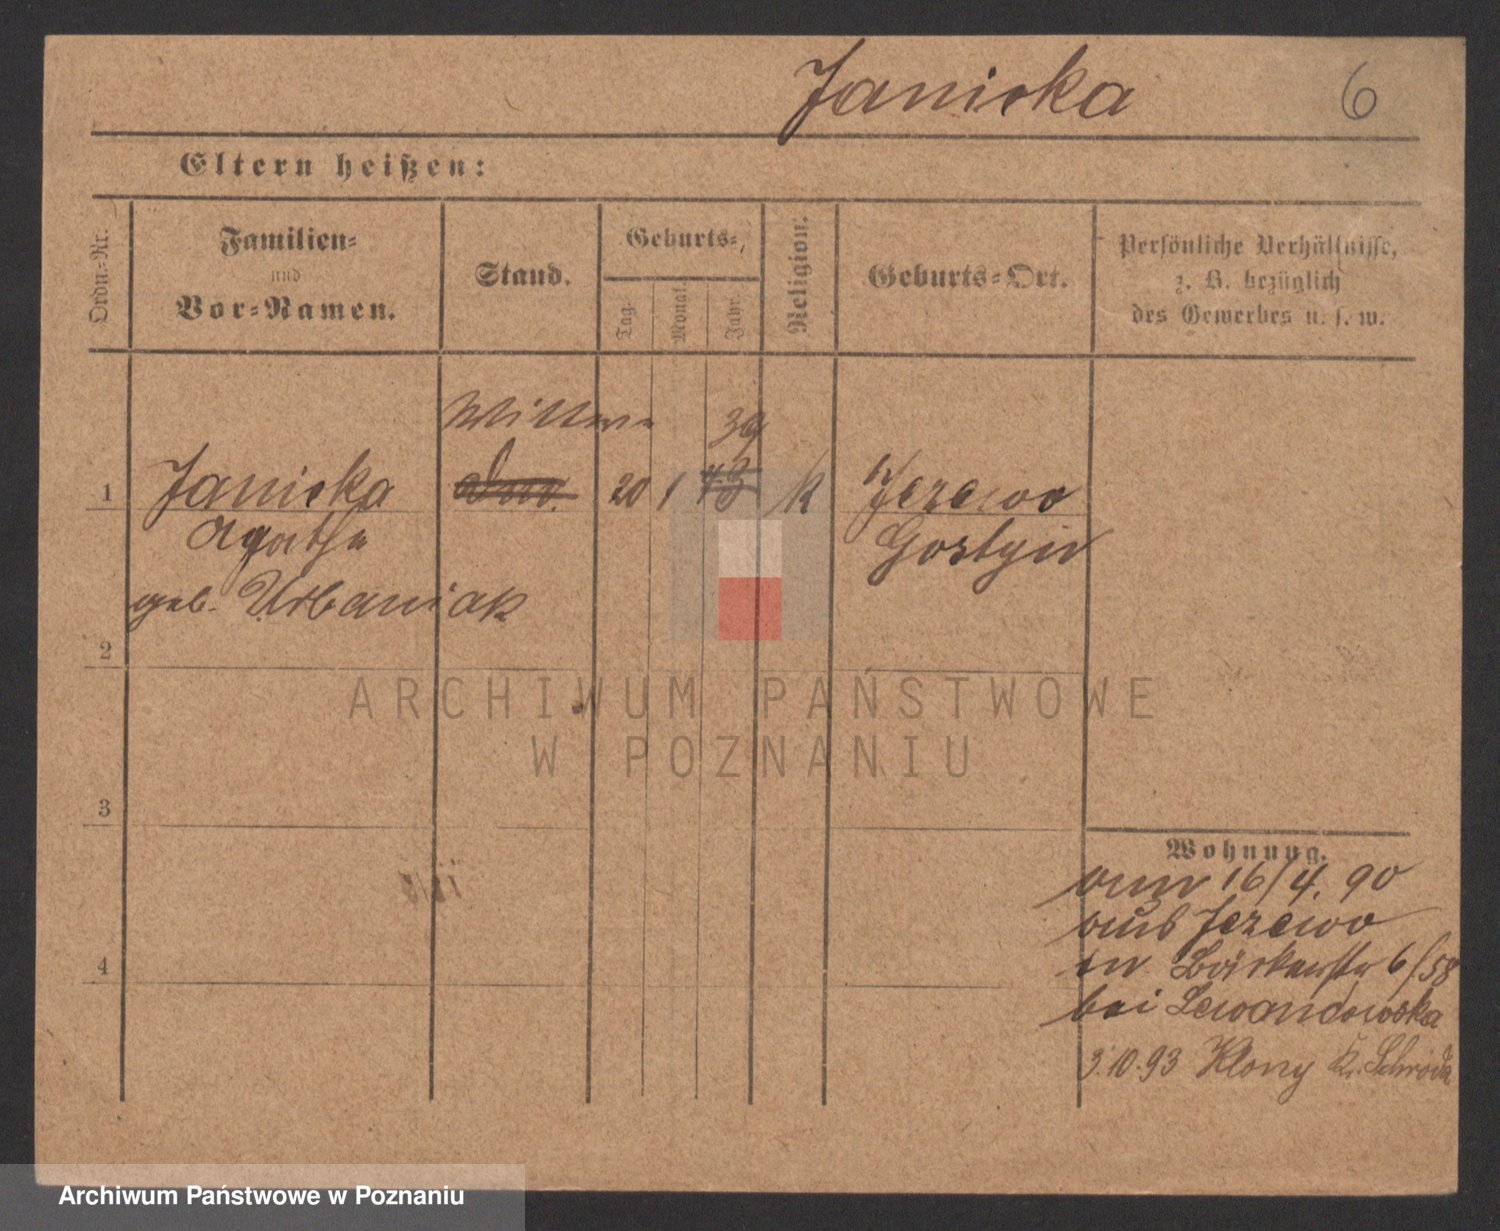 Janicka 6
Eltern heißen:
Ordn.-Nr.
Familien-
und
Vor-Namen.
Stand.
Geburts-
Tag.
Monat.
Jahr.
Religion.
Geburts-Ort.
Persönliche Verhältnisse,
z. B. bezüglich
des Gewerbes u. s. w.
Wittwe 39
1 Janicka 20 1 43 k Jezewo
Agathe Gostyn
geb. Urbaniak
2
3
4
ARCHIWUM PAŃSTWOWE
W POZNANIU
Wohnung.
am 16/4. 90
aus Jezewo
in Bäckerstr 6/58
bei Lewandowska
3.10.93 Klony K. Schroda
Archiwum Państwowe w Poznaniu